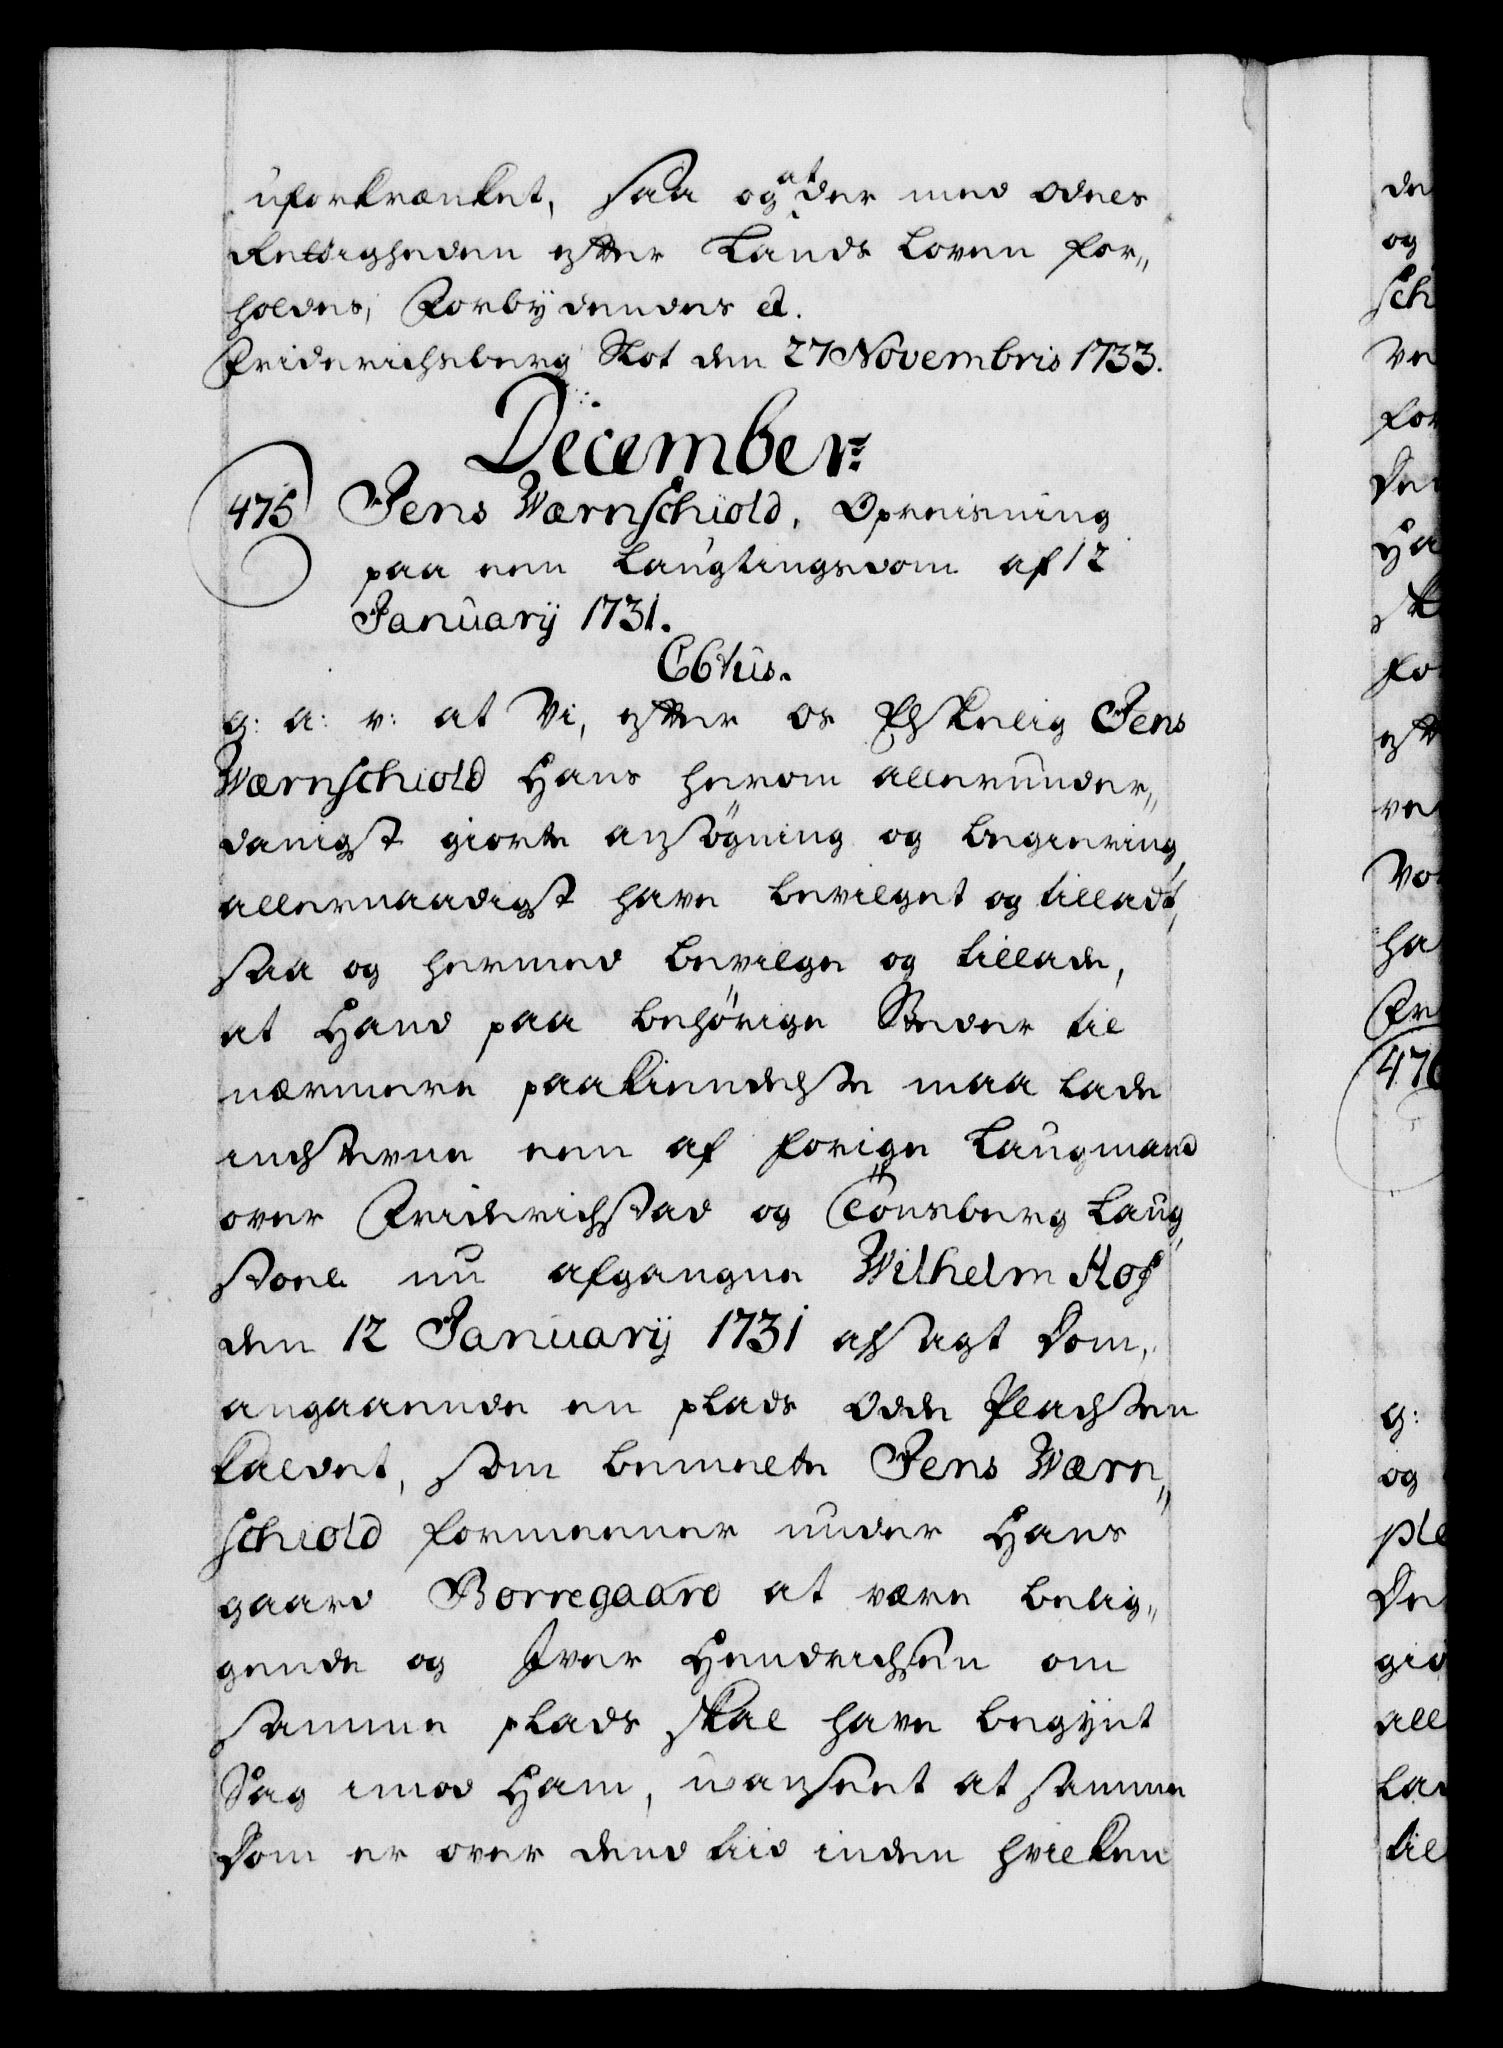 uforkrænket, saa og at der med odels
Rettigheden efter Lands Loven for„
holdes; Forbydendes etc.
Friderichsberg Slot den 27 Novembris 1733.
December:
475 Jens Wærnschiold, Opreisning
paa een Laugtingsdom af 12
January 1731.
C6tus.
g: a: v: at Vi, efter os Elskelig Jens
Wærnschiold Hans herom allerunder„
danigst giorte ansøgning og begiering,
allernaadigst have bevilget og tilladt,
saa og hermed bevilge og tillade,
at Hand paa behørige Steder til
nærmere paakiendelse maa lade
indstevne een af forige Laugmand
over Friderichstad og Tönsberg Laug„
stoel nu afgangne Wilhelm Hof
den 12 January 1731 afsagt Dom,
angaaende en plads Odde Pladsen
kaldet, som bemelte Jens Wærn„
schiold formeener under Hans
gaard Borregaard at være belig„
gende og Iver Hendrichsen om
samme plads skal have begynt
Sag imod Ham, uanseet at samme
Dom er over dend tiid inden hvilken
de
og
sch
ve
for
Den
Ha
sk
fo
eft
ve
Vo
ha
Fri
476
g:
og
ple
De
gio
all
la
til